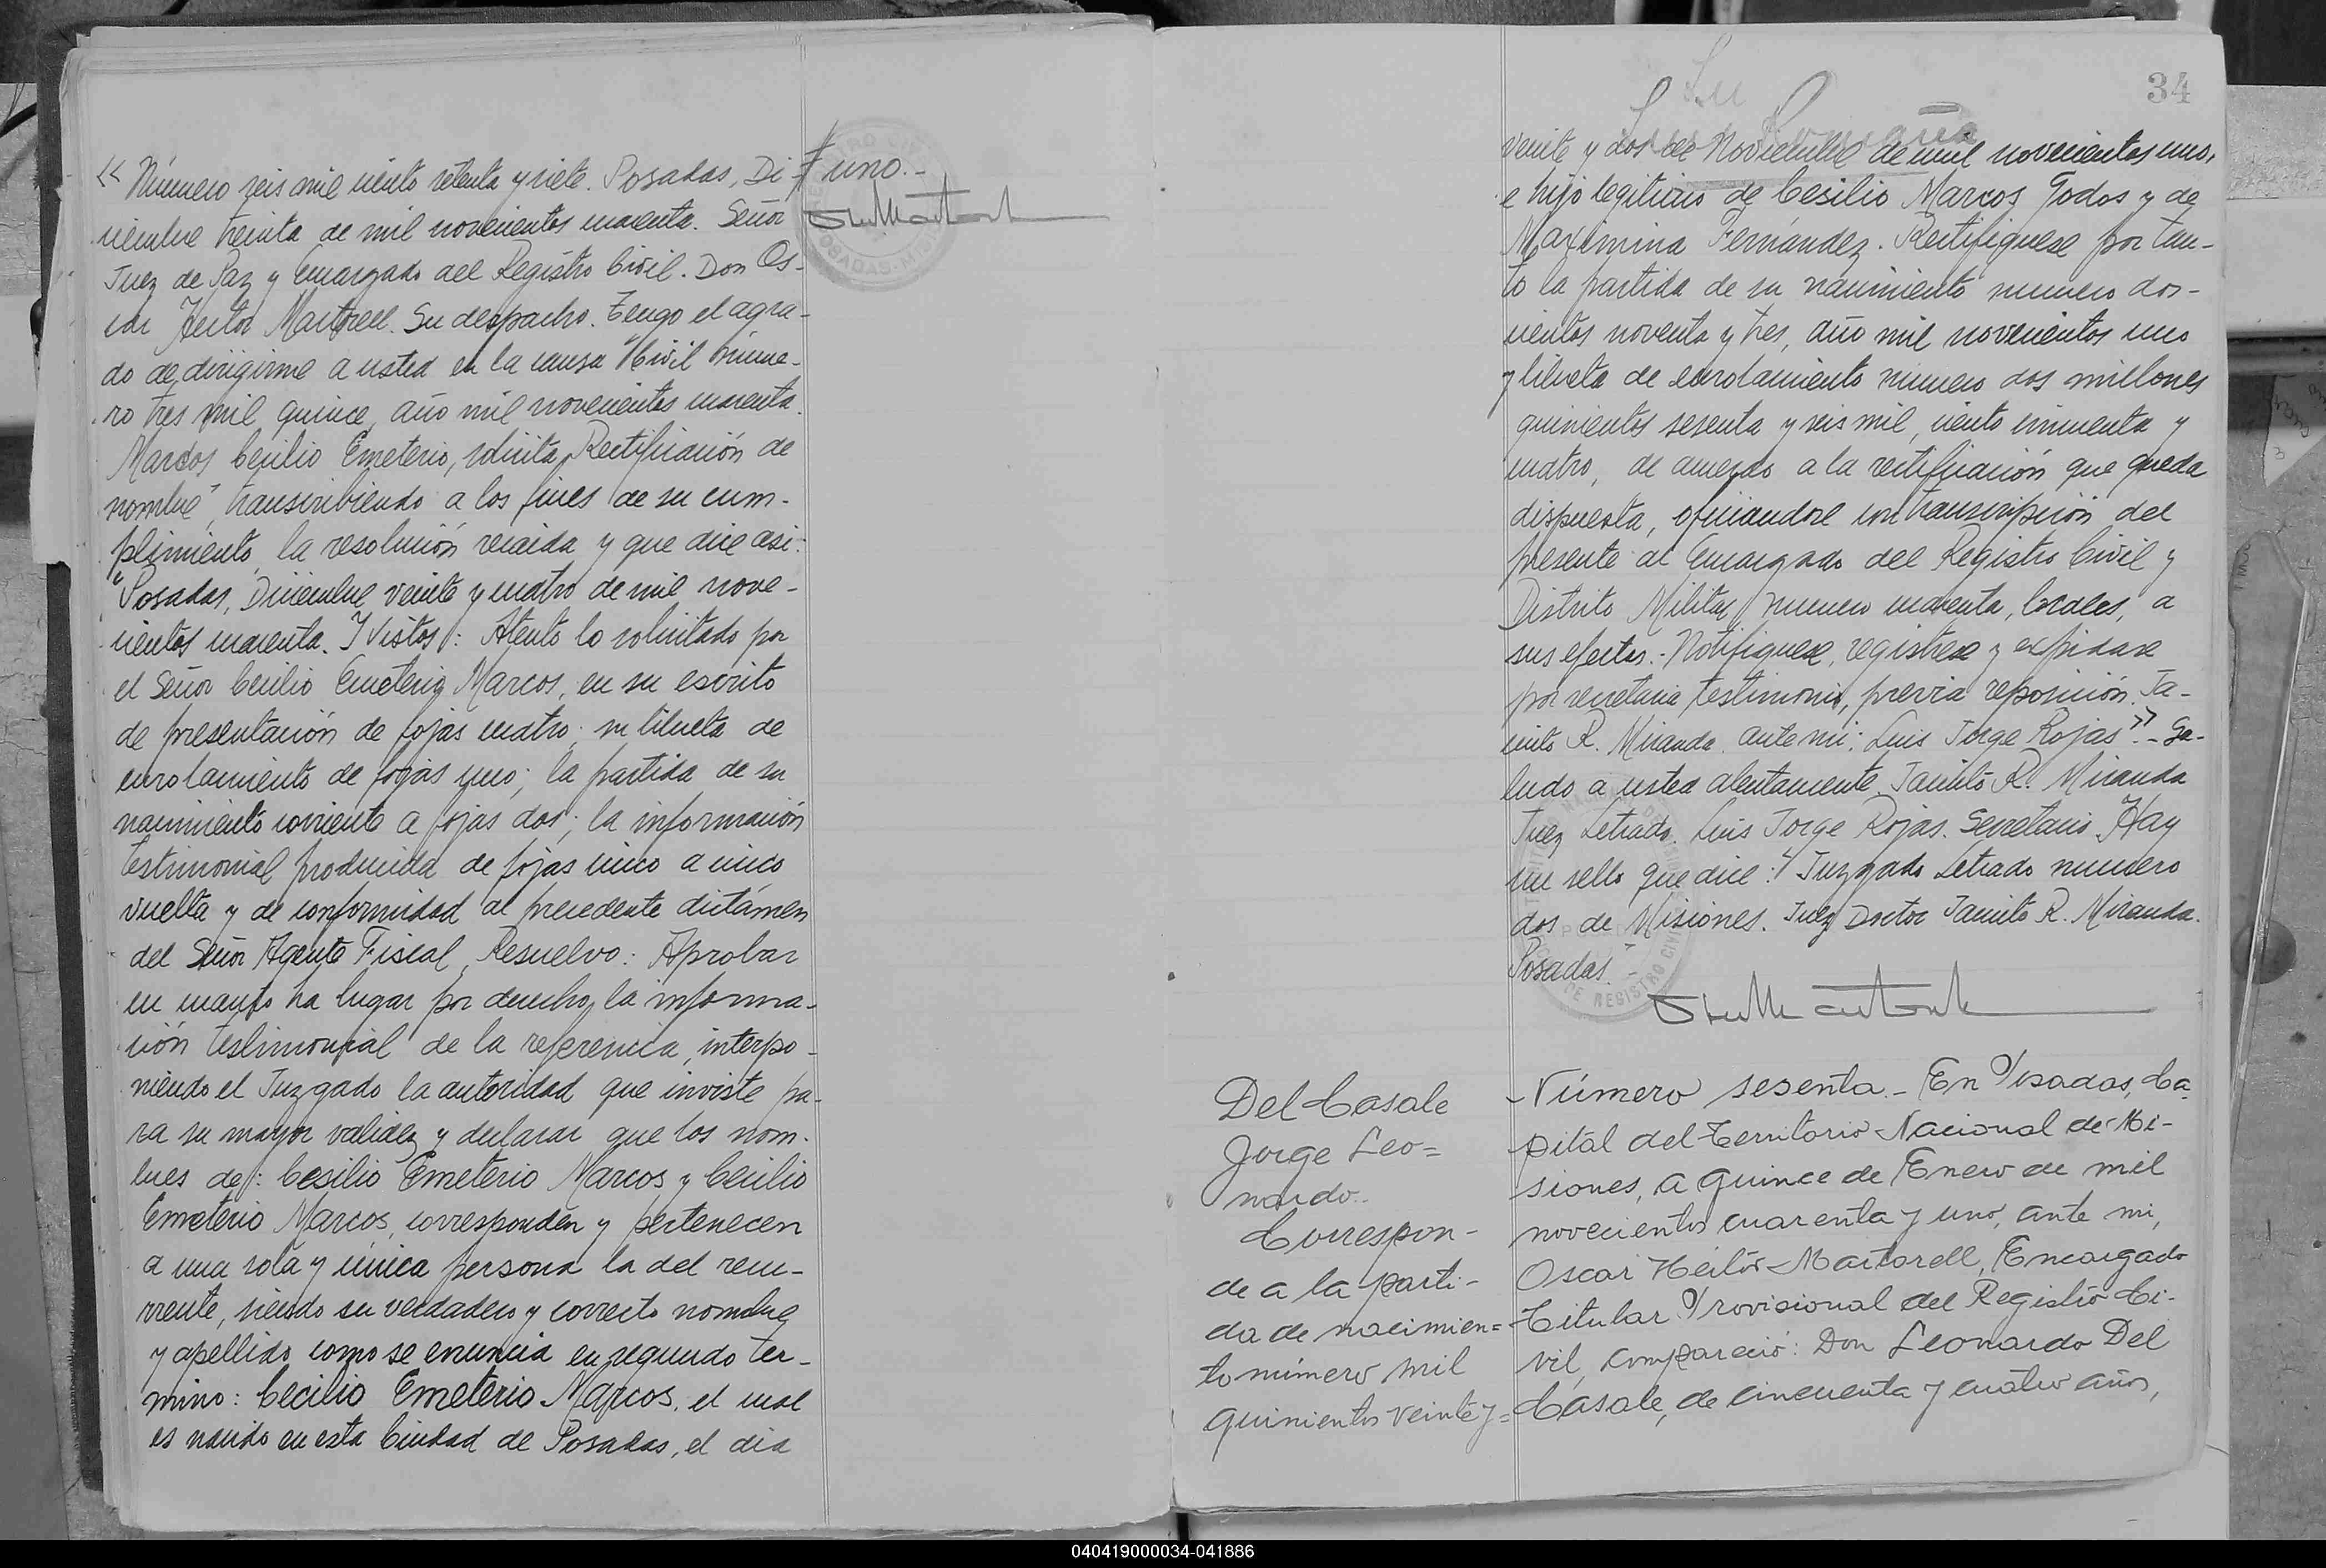 « Número seis mil ciento setenta y siete. Posadas, Di-
ciembre treinta de mil novecientos cuarenta. Señor
Juez de Paz y Encargado del Registro Civil. Don Os-
car Hector Martorell. Su despacho. Tengo el agra-
do de dirigirme a usted en la causa "Civil núme-
ro tres mil quince, año mil novecientos cuarenta.
Marcos Cecilio Emeterio, solicita Rectificación de
nombre", transcribiendo a los fines de su cum-
plimiento, la resolución recaida y que dice asi:
"Posadas, Diciembre veinte y cuatro de mil nove-
cientos cuarenta. Y Vistos: Atento lo solicitado por
el Señor Cecilio Emeterio Marcos, en su escrito
de presentación de fojas cuatro; su libreta de
enrolamiento de fojas uno; la partida de su
nacimiento corriente a fojas dos; la información
testimonial producida de fojas cinco a cinco
vuelta y de conformidad al precedente dictámen
del Señor Agente Fiscal, Resuelvo: Aprobar
en cuanto ha lugar por derecho, la informa-
ción testimonial de la referencia, interpo-
niendo el Juzgado la autoridad que inviste pa-
ra su mayor validez y declarar que los nom-
bres de: Cesilio Emeterio Marcos y Cecilio
Emeterio Marcos, corresponden y pertenecen
a una sola y única persona la del recu-
rrente, siendo su verdadero y correcto nombre
y apellido como se enuncia en segundo ter-
mino: Cecilio Emeterio Marcos, el cual
es nacido en esta Ciudad de Posadas, el dia
uno.-
34
veinte y dos de Noviembre de mil novecientos uno,
e hijo legitimo de Cesilio Marcos Godos y de
Maximina Fernández. Rectifiquese por tan-
to la partida de su nacimiento numero dos-
cientos noventa y tres, año mil novecientos uno
y libreta de enrolamiento numero dos millones
quinientos sesenta y seis mil, ciento cincuenta y
cuatro, de acuerdo a la rectificación que queda
dispuesta, oficiandose con transcripción del
presente al Encargado del Registro Civil y
Distrito Militar numero cuarenta, locales, a
sus efectos.- Notifiquese, registrese y expidase
por secretaria testimonio, previa reposición. Ja-
cinto R. Miranda. ante mi: Luis Jorge Rojas".- Sa-
ludo a usted atentamente. Jacinto R. Miranda
Juez Letrado. Luis Jorge Rojas. Secretario. Hay
un sello que dice: "Juzgado Letrado numero
dos de Misiones. Juez Doctor Jacinto R. Miranda.
Posadas".-
Del Casale
Jorge Leo=
nardo.
Correspon-
de a la parti-
da de nacimien=
to número mil
quinientos veinte y=
Número sesenta.- En Posadas, Ca-
pital del Territorio Nacional de Mi-
siones, a quince de Enero de mil
novecientos cuarenta y uno, ante mi,
Oscar Héctor Martorell, Encargado
Titular Provisional del Registro Ci-
vil, compareció: Don Leonardo Del
Casale, de cincuenta y cuatro años,
040419000034-041886